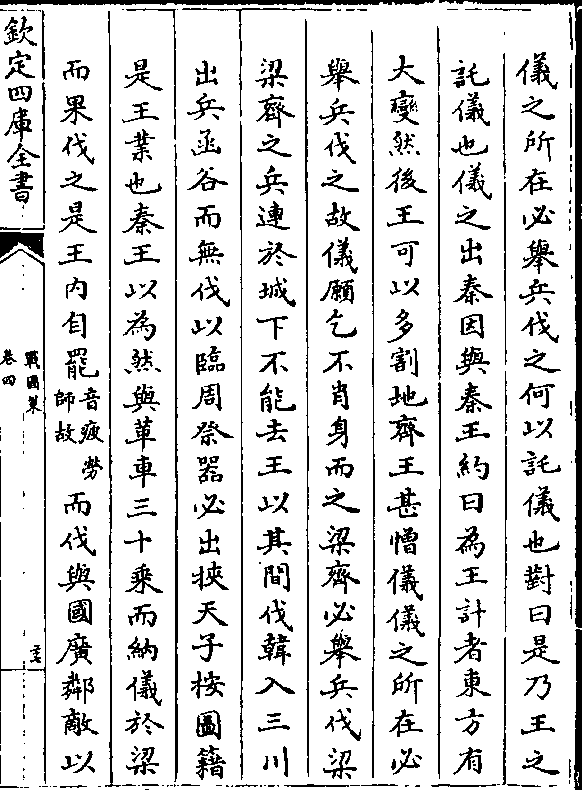 儀之所在必舉兵伐之何以託儀也對曰是乃王之
託儀也儀之出秦因與秦王約曰為王計者東方有
大變然後王可以多割地齊王甚憎儀儀之所在必
舉兵伐之故儀願乞不肖身而之梁齊必舉兵伐梁
梁齊之兵連於城下不能去王以其間伐韓入三川
出兵函谷而無伐以臨周祭器必出挾天子按圖籍
是王業也秦王以為然與革車三十乘而納儀於梁
而果伐之是王内自罷音疲勞師故而伐與國廣鄰敵以
欽定四庫全書
戰國策
卷四